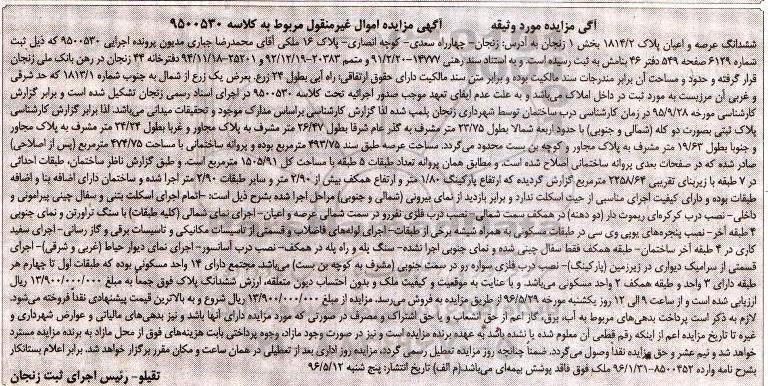 آگی مزایده مورد وثیقه آگهی مزایده اموال غیرمنقول مربوط به کلاسه ۹۵۰۰۵۳۰
ششدانگ عرصه و اعیان پلاک ۱۸۱۴/۲ بخش ۱ زنجان به آدرس: زنجان- چهارراه سعدی- کوچه انصاری- پلاک ۱۶ ملکی آقای محمدرضا جباری مدیون پرونده اجرایی ۹۵۰۰۵۳۰ که ذیل ثبت
شماره ۶۱۲۹ صفحه ۵۴۹ دفتر ۴۶ بنامش به ثبت رسیده است. و به استناد سند رهنی ۱۴۷۷۷-۹۱/۲/۲۰ و متمم ۲۰۳۸۳-۹۲/۱۲/۱۹ و ۲۵۲۰۱-۹۴/۱۱/۱۸ دفترخانه ۴۳ زنجان در رهن بانک ملی زنجان
قرار گرفته و حدود و مساحت آن برابر مندرجات سند مالکیت بوده و برابر متن سند مالکیت دارای حقوق ارتفاقی: راه آبی بطول ۲۴ زرع، بعرض یک زرع از شمال به جنوب شماره ۱۸۱۳/۱ که حد شرقی
و غربی آن مرزیست به مورد ثبت در داخل املاک می‌باشد و به علت عدم ایفای تعهد موجب صدور اجرائیه تحت کلاسه ۹۵۰۰۵۳۰ در اجرای اسناد رسمی زنجان تشکیل شده است و برابر گزارش
کارشناسی مورخه ۹۵/۹/۲۸ در زمان کارشناسی درب ساختمان توسط شهرداری زنجان پلمب شده لذا گزارش کارشناسی براساس مدارک موجود و تحقیقات میدانی می‌باشد. لذا برابر گزارش کارشناسی
پلاک ثبتی بصورت دو کله (شمالی و جنوبی) با حدود اربعه شمالا بطول ۲۲/۷۵ متر مشرف به گذر عام شرقا بطول ۲۶/۴۷ متر مشرف به پلاک مجاور و غربا بطول ۲۴/۲۴ متر مشرف به پلاک مجاور
و جنوبا بطول ۱۹/۶۳ متر مشرف به پلاک مجاور و کوچه بن بست محدود می‌گردد. مساحت عرصه طبق سند ۴۹۳/۷۵ مترمربع بوده و پروانه ساختمانی با مساحت ۴۷۴/۷۵ مترمربع (پس از اصلاحی)
صادر شده که در صفحات بعدی پروانه ساختمانی اصلاح شده است. و مطابق همان پروانه تعداد طبقات ۵ طبقه با مساحت کل ۱۵۰۵/۹۱ مترمربع است. و طبق گزارش ناظر ساختمان، طبقات احداثی
در ۷ طبقه با زیربنای تقریبی ۲۲۵۸/۶۴ مترمربع گزارش گردیده که ارتفاع پارکینگ ۱/۸۰ متر و ارتفاع همکف بیش از ۲/۹۰ متر و سایر طبقات ۲/۹۰ متر اجرا شده و ساختمان دارای اضافه بنا و اضافه
طبقات بوده و دارای کیفیت اجرای مناسبی از حیث اسکلت ندارد و برابر بازدید از نمای بیرونی (شمالی و جنوبی) مراحل اجرا شده بشرح ذیل است:- اتمام اجرای اسکلت بتنی و سفال چینی پیرامونی و
داخلی- نصب درب کرکره‌ای ریموت دار (دو دهنه) در همکف سمت شمالی- نصب درب فلزی نفررو در سمت شمالی عرصه و اعیان- اجرای نمای شمالی (کلیه طبقات) با سنگ تراورتن و نمای جنوبی
۴ طبقه آخر- نصب پنجره‌های یوپی وی سی در طبقات مسکونی به همراه شیشه برخی از طبقات- اجرای لوله‌های فاضلاب و قسمتی از تاسیسات مکانیکی و تاسیسات برقی و گاز رسانی- اجرای سفید
کاری در ۴ طبقه آخر ساختمان- طبقه همکف فقط سفال چینی شده و نمای جنوبی اجرا نشده- سنگ پله و راه پله در همکف- نصب درب آسانسور- اجرای نمای دیوار حیاط (غربی و شرقی)- اجرای
قسمتی از سرامیک دیواری در زیرزمین (پارکینگ)- نصب درب فلزی سواره رو در سمت جنوبی (مشرف به کوچه بن بست) می‌باشد. مجتمع دارای ۱۴ واحد مسکونی بوده که طبقات اول تا چهارم هر
طبقه دارای ۳ واحد و طبقه همکف ۲ واحد مسکونی می‌باشد. و با عنایت به موقعیت و کیفیت ملک و بدون احتساب دیون متعلقه، ارزش ششدانگ پلاک فوق جمعاً به مبلغ ۱۳/۹۰۰/۰۰۰/۰۰۰ ریال
ارزیابی شده است و از ساعت ۹ الی ۱۲ روز یکشنبه مورخه ۹۶/۵/۲۹ از طریق مزایده به فروش می‌رسد. مزایده از مبلغ ۱۳/۹۰۰/۰۰۰/۰۰۰ ریال شروع و به بالاترین قیمت پیشنهادی نقداً فروخته می‌شود.
لازم به ذکر است پرداخت بدهی‌های مربوط به آب، برق، گاز اعم از حق انشعاب و یا حق اشتراک و مصرف در صورتی که مورد مزایده دارای آنها باشد و نیز بدهی‌های مالیاتی و عوارض شهرداری و
غیره تا تاریخ مزایده اعم از اینکه رقم قطعی آن معلوم شده یا نشده باشد به عهده برنده مزایده است و نیز در صورت وجود مازاد، وجوه پرداختی بابت هزینه‌های فوق از محل مازاد به برنده مزایده مسترد
خواهد شد و نیم عشر و حق مزایده نقداً وصول می‌گردد. ضمناً چنانچه روز مزایده تعطیل رسمی گردد، مزایده روز اداری بعد از تعطیلی در همان ساعت و مکان مقرر برگزار خواهد شد. برابر اعلام بستانکار
بشرح نامه وارده ۸۵۰۰۴۵۲-۹۶/۱/۳۱ ملک فوق فاقد پوشش بیمه‌ای می‌باشد.(م الف) تاریخ انتشار: پنج شنبه ۹۶/۵/۱۲
تقیلو- رئیس اجرای ثبت زنجان